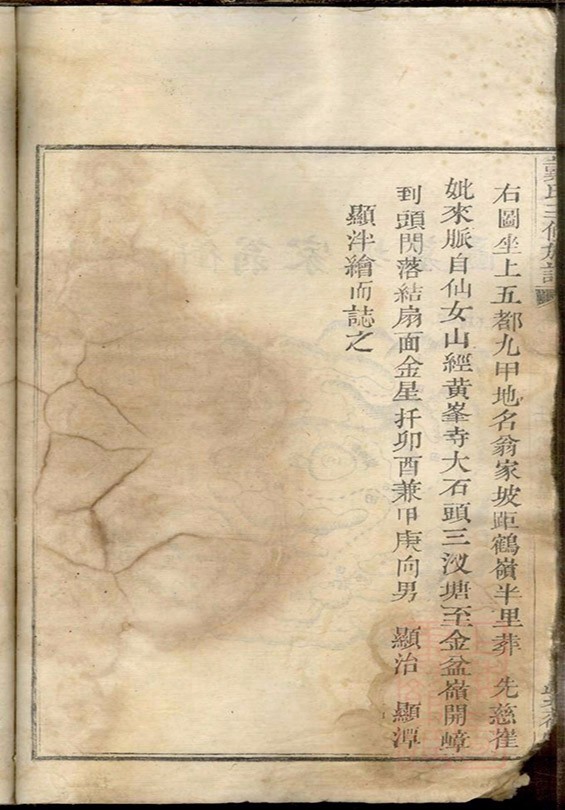 右圖坐上五都九甲地名翁家坡距鶴嶺半里葬　先慈崔
妣來脈自仙女山經黃峯寺大石頭三汊塘至金盆嶺開嶂
到頭閃落結扇面金星扦卯酉兼甲庚向男　顯治　顯潭
顯泮繪而誌之